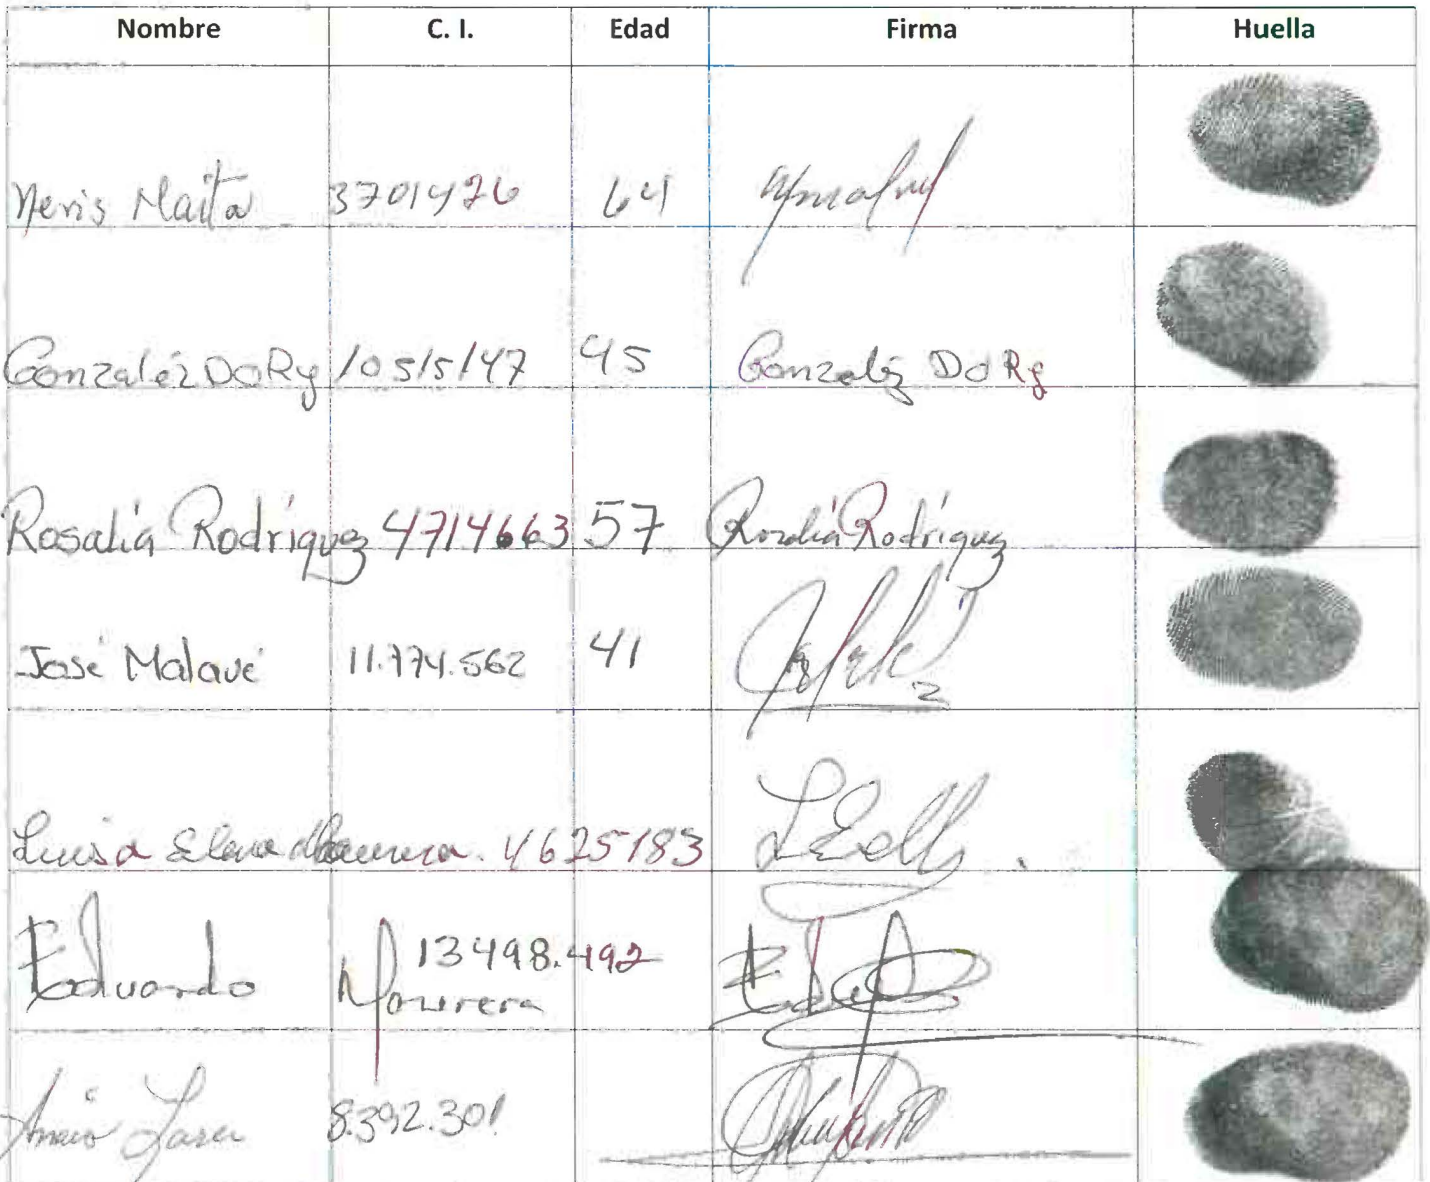 Nombre C. I. Edad Firma Huella
Neris Maita 3701426 64
González DoRy 10515147 45 González DoRy
Rosalía Rodríguez 4714663 57 Rosalía Rodríguez
José Malavé 11.774.562 41
Luisa Elena 4625183
Eduardo Mourera 13498.492
Lara 8.392.301